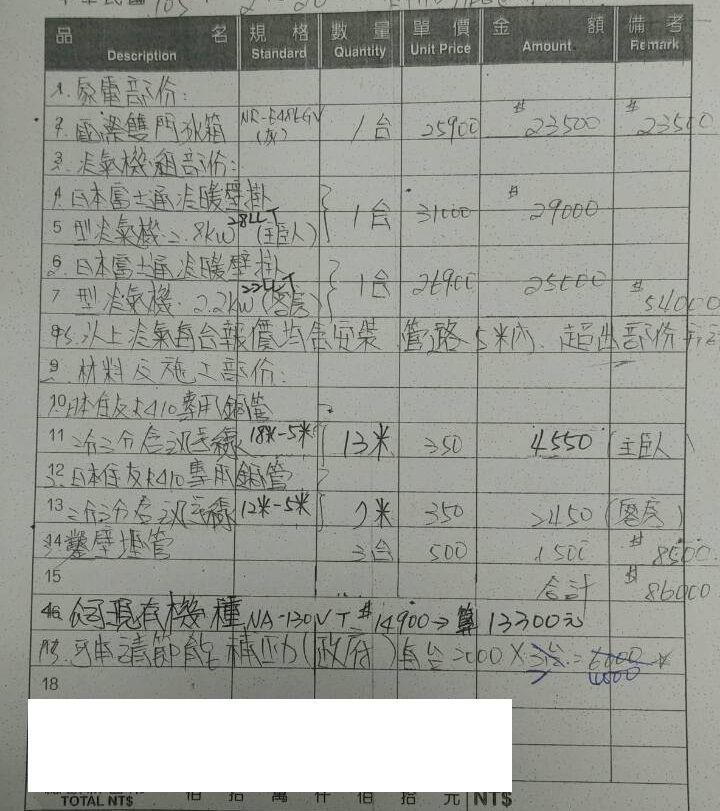 品 名 規 格 數 量 單 價 金 額 備 考
Description Standard Quantity Unit Price Amount Remark
1. 家電部份:
2. 雙門冰箱 NR-E48LGV 1台 25900 $23500 $23500
3. 冷氣機組部份:
4. 日本富士通冷暖壁掛
5 型冷氣機 2.8kw 28LLT (主臥) 1台 31000 $29000
6. 日本富士通冷暖壁掛
7 型冷氣機. 2.2kw 22LLT (客房) 1台 26900 25000 $54000
以上冷氣每台報價均含安裝 管路5米內. 超出部份
9. 材料及施工部份:
10. 日本住友R410專用銅管
11 二分三分含訊號線 18米-5米 13米 350 4550 (主臥)
12. 日本住友R410專用銅管
13. 二分三分含訊號線 12米-5米 7米 350 2450 (客房)
壁埋管 3台 500 1500 $8500
15 合計 $86000
現有機種 NA-130VT $14900→算13300元
可申請節能補助(政府)每台2000X3台=6000
4000
18
TOTAL NT$ 佰 拾 萬 仟 佰 拾 元 NT$